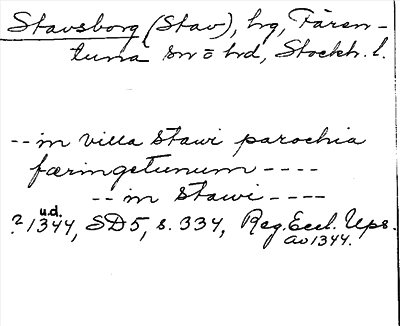 Stavsborg (Stav), hg, Fären-
tuna sn o hd, Stockh. l.
-- in villa stawi parochia
færingetunum ----
-- in stawi ----
u.d.
? 1344, SD5, s. 334, Reg. Eccl. Ups.
av 1344.